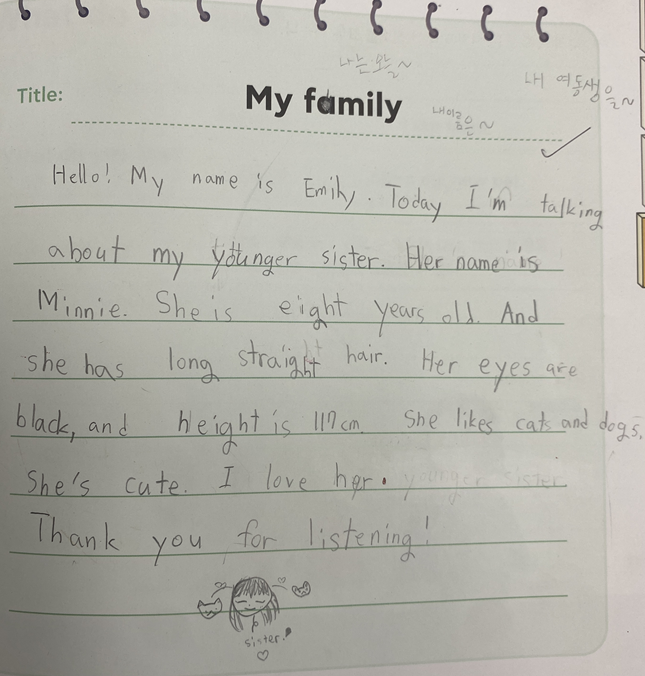 나는 오늘~
내 여동생을~
Title: My family
내이름은~
Hello! My name is Emily. Today I'm talking
about my younger sister. Her name is
Minnie. She is eight years old. And
she has long straight hair. Her eyes are
black, and height is 117cm. She likes cats and dogs.
She's cute. I love her. younger sister
Thank you for listening!
sister!